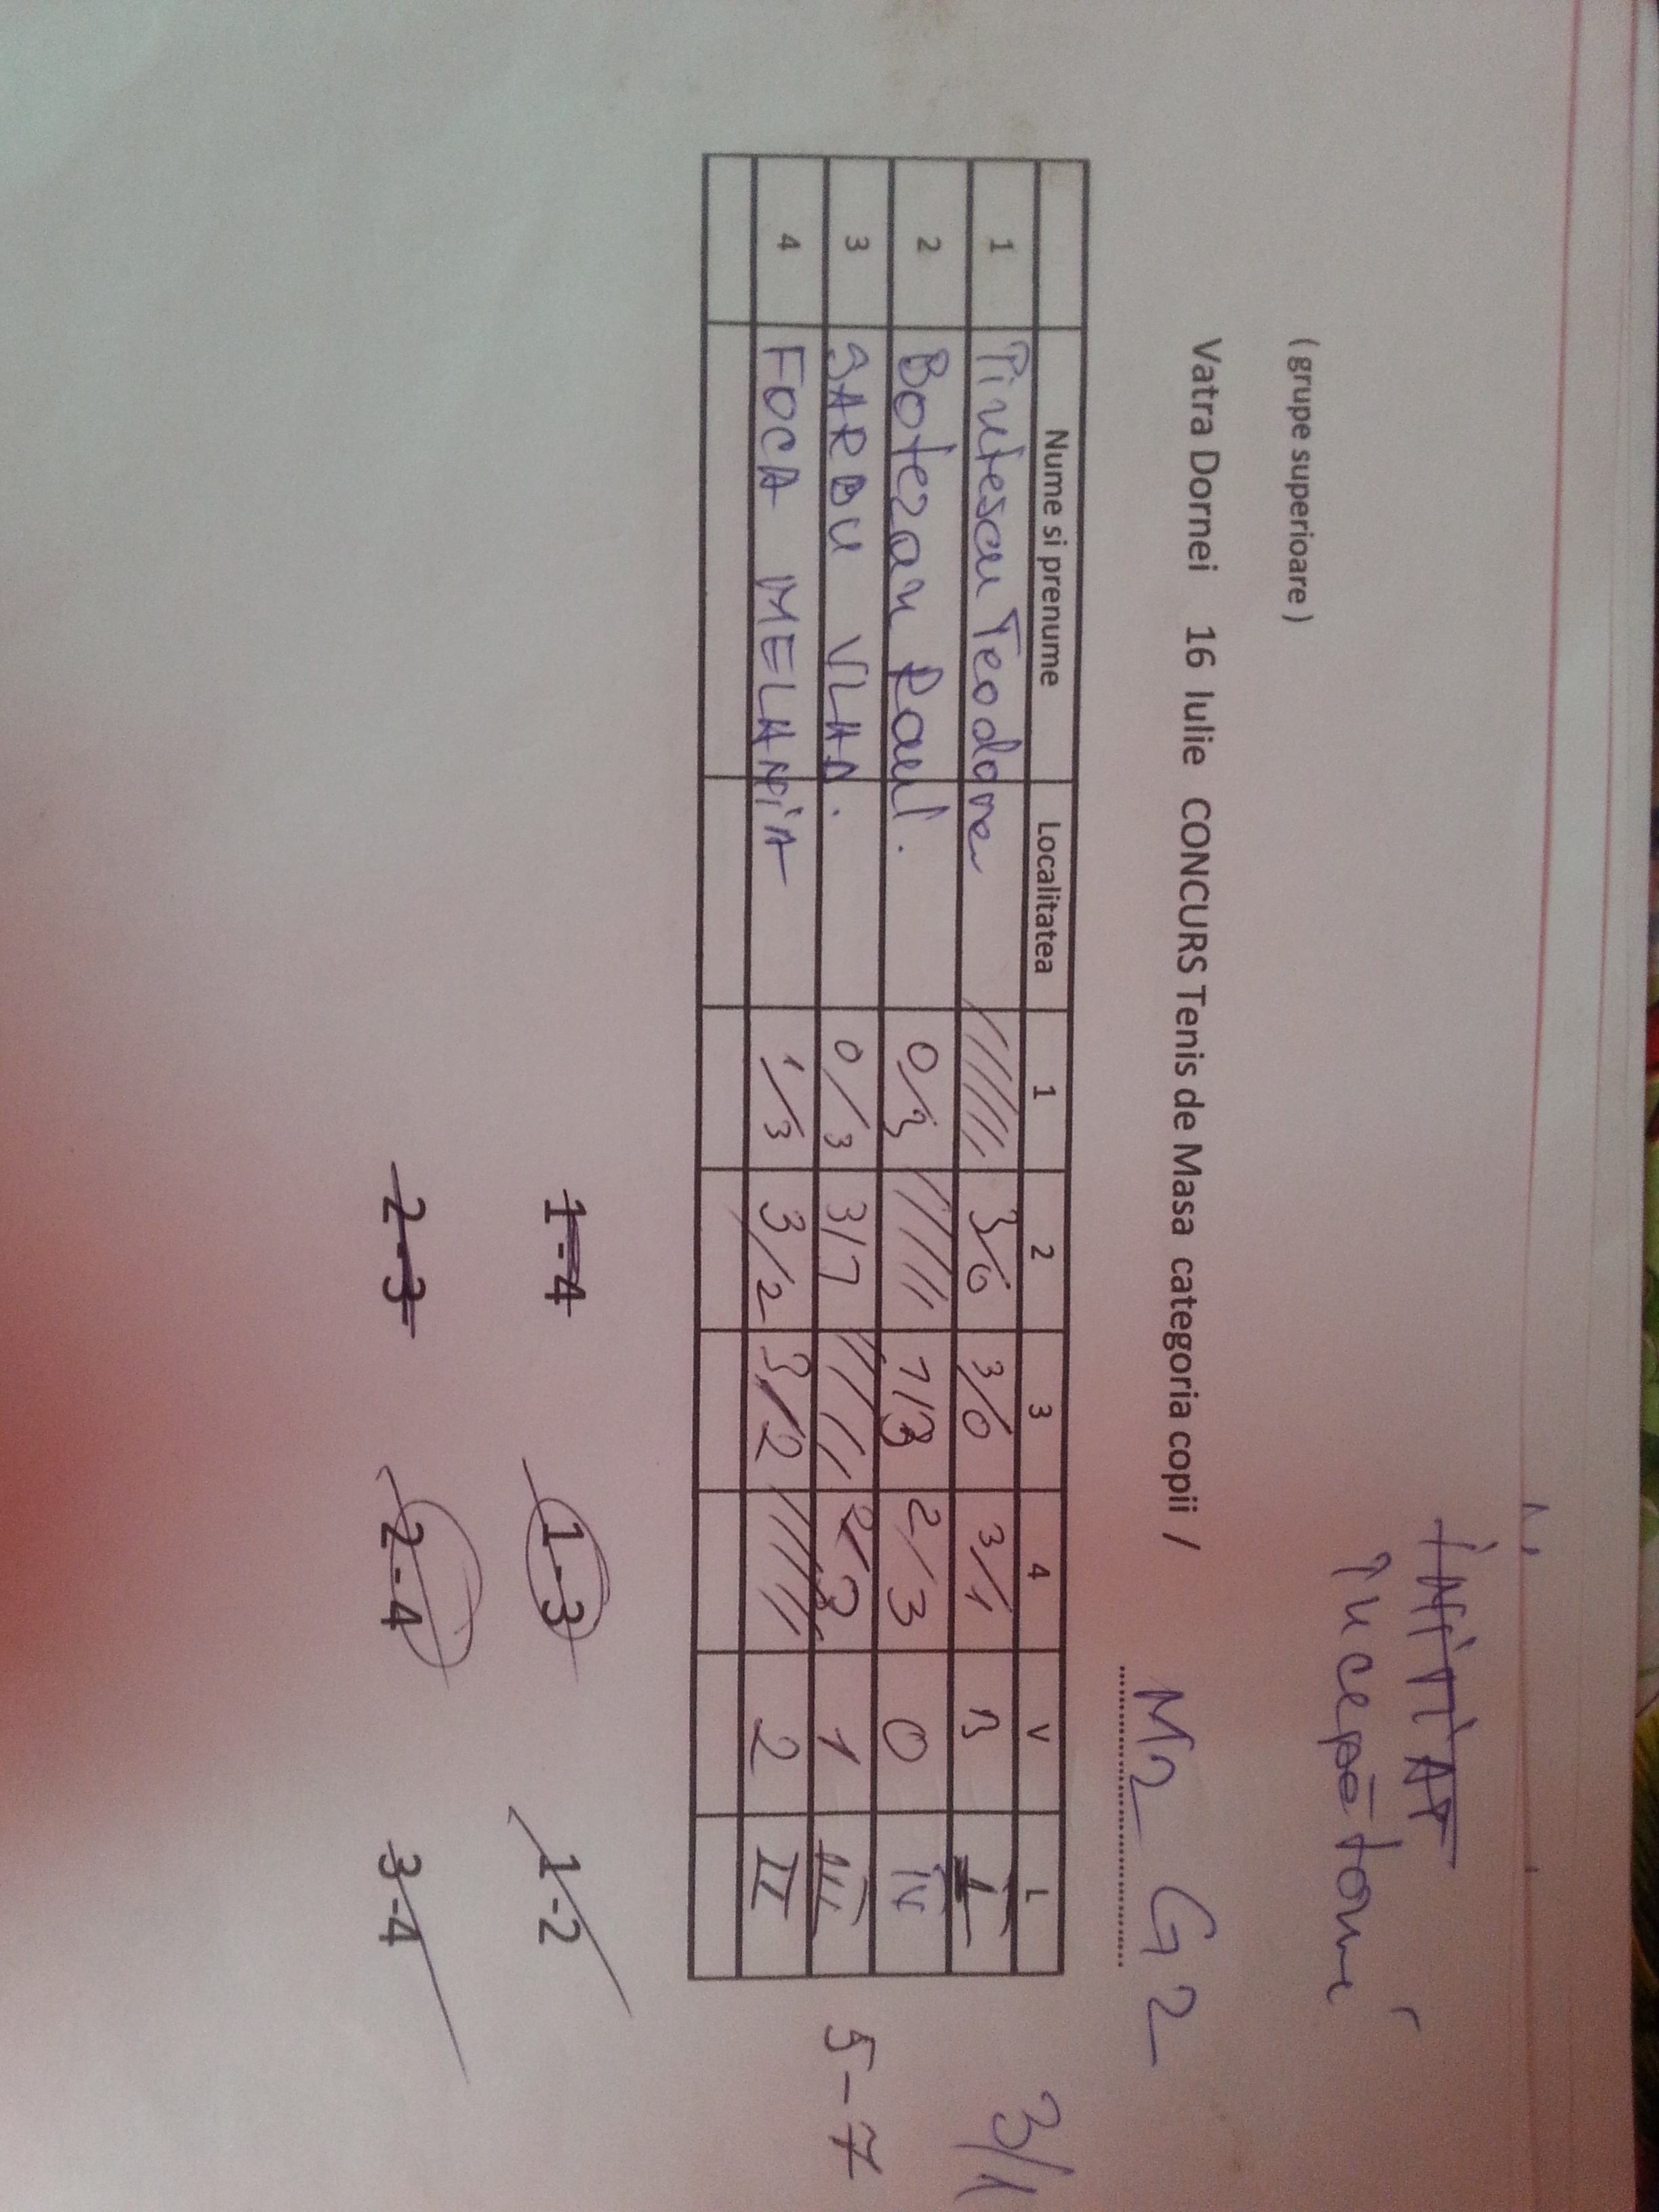 ÎNIȚIAȚ
Începători
( grupe superioare )
Vatra Dornei 16 Iulie CONCURS Tenis de Masa categoria copii / M2 G2
Nume si prenume Localitatea 1 2 3 4 V L
1 Pintescu Teodora 3/0 3/0 3/1 3 I 3/1
2 Botezan Raul. 0/3 1/3 2/3 0 IV
3 SARBU VLAD. 0/3 3/1 2/3 1 III 5-7
4 FOCA MELANIA 1/3 3/2 3/2 2 II
1-4 1-3 1-2
2-3 2-4 3-4